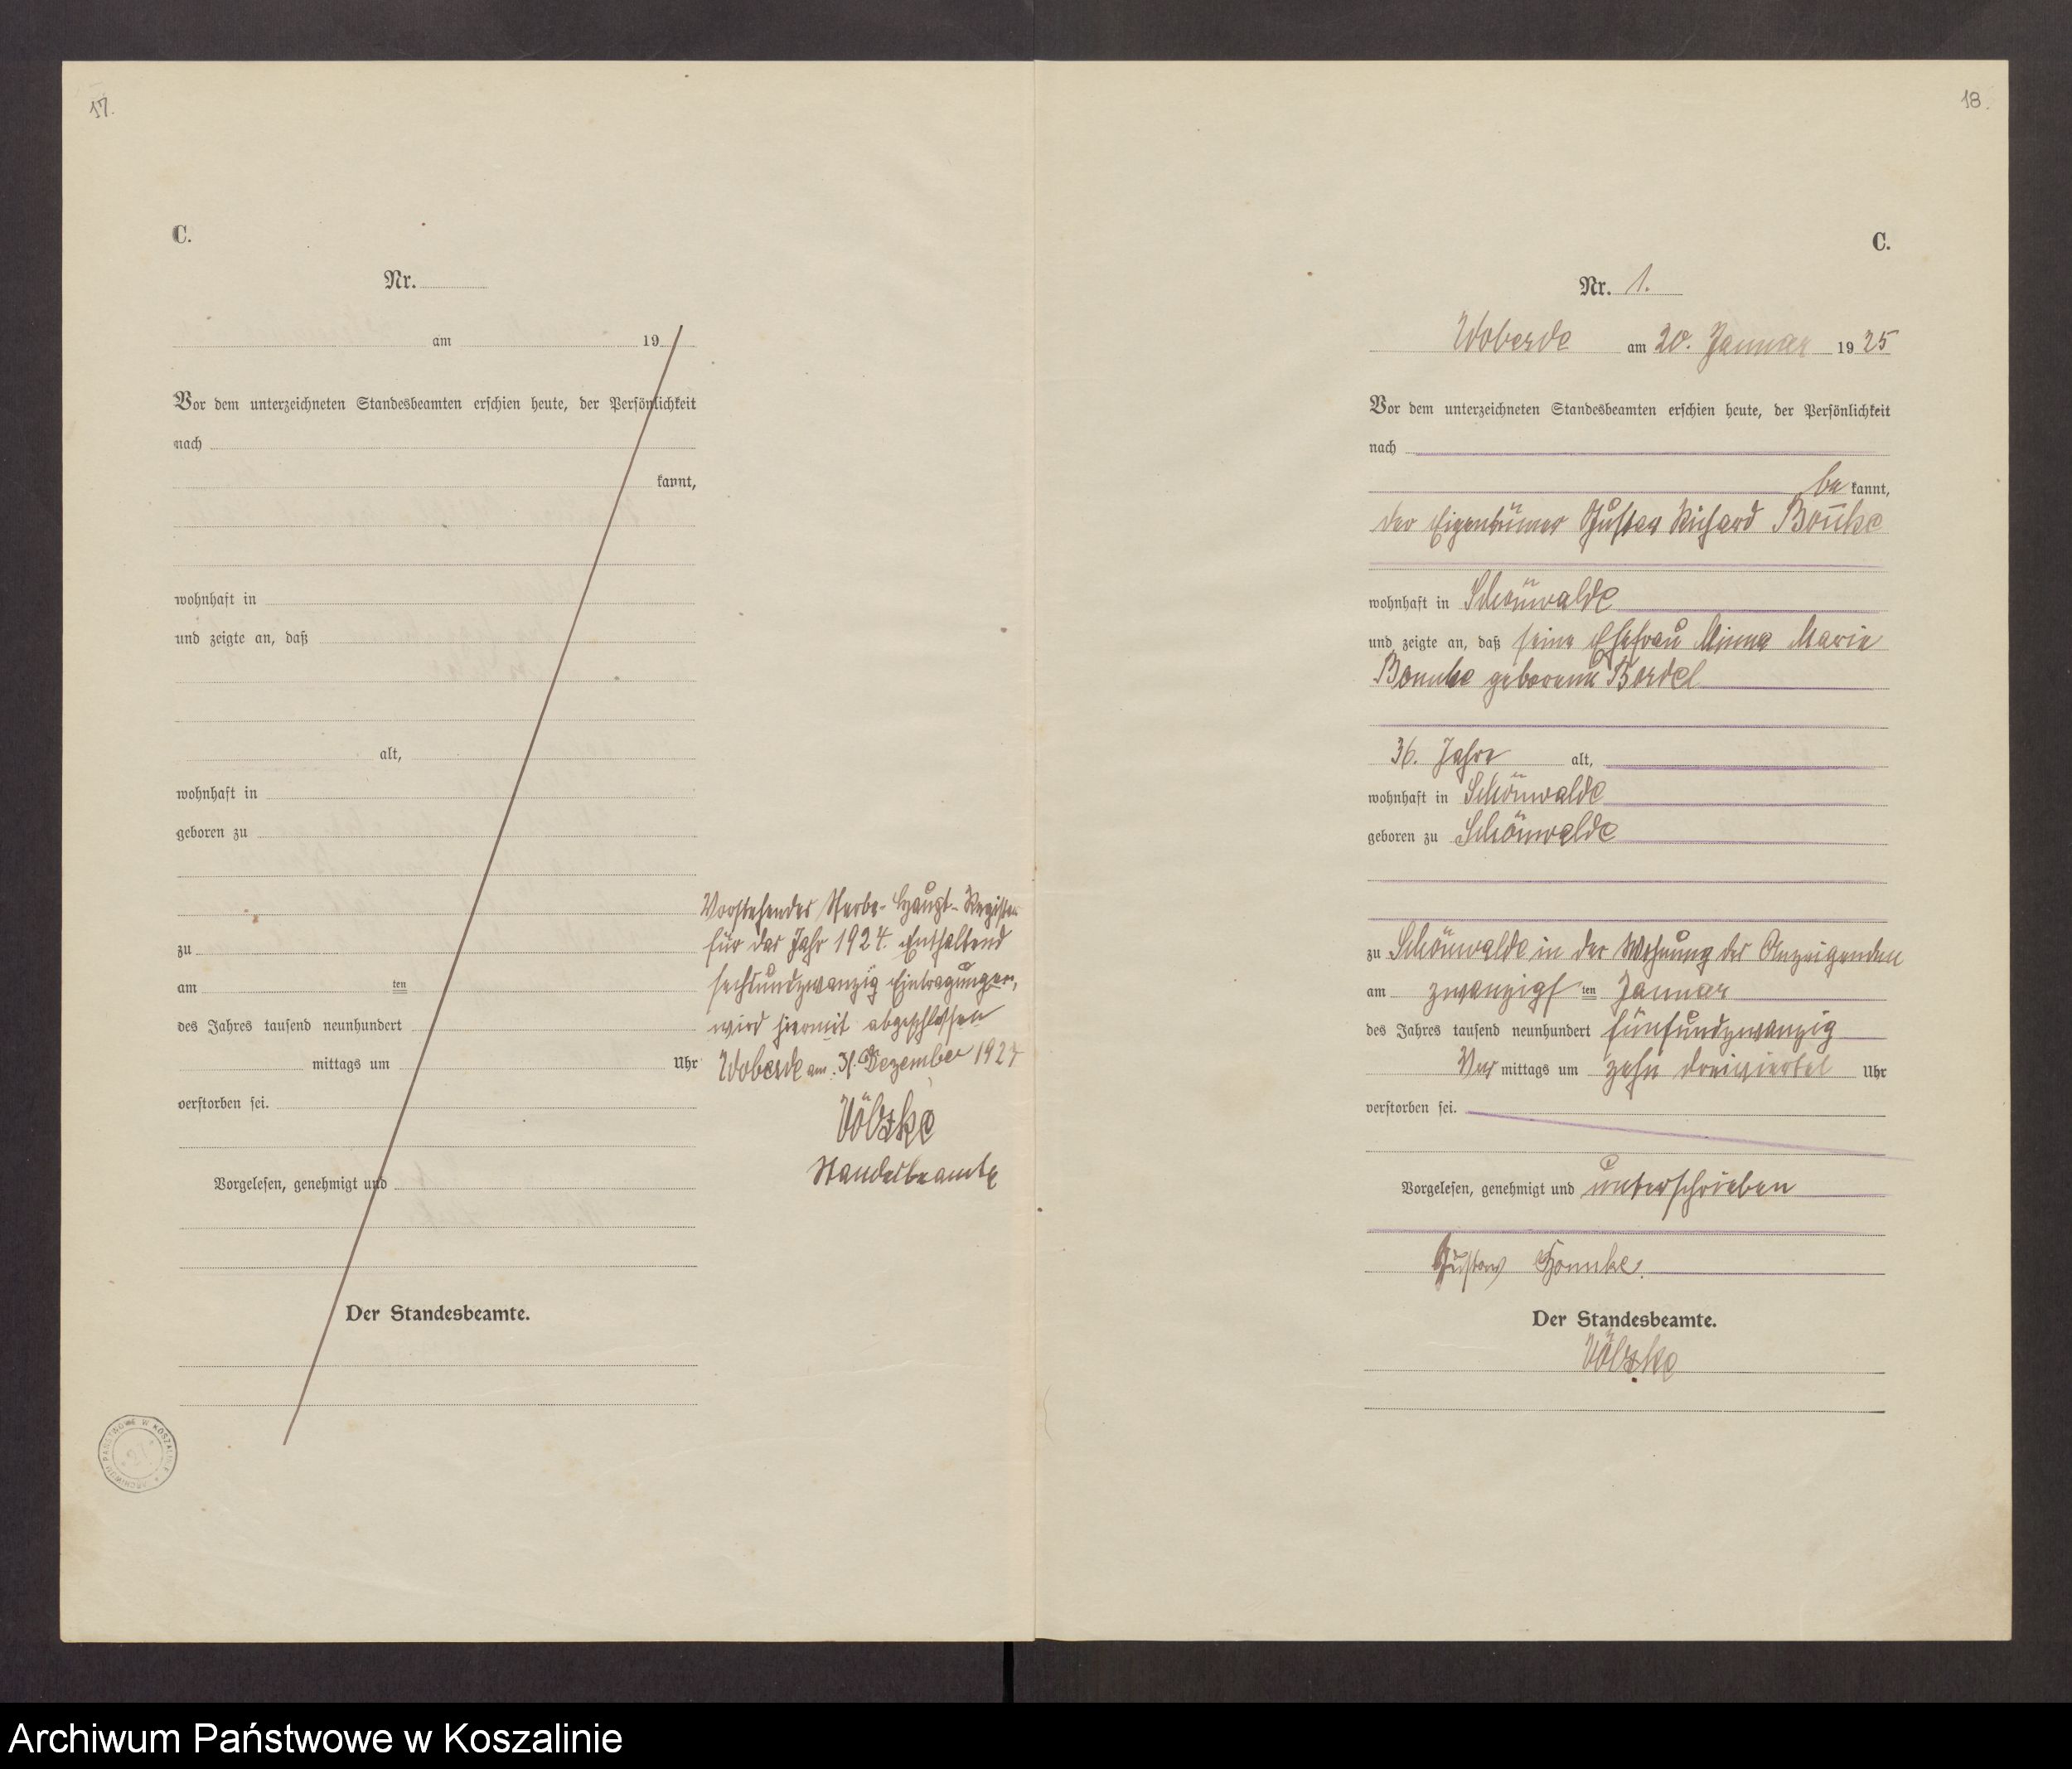 17.
C.
Nr.
am 19
Vor dem unterzeichneten Standesbeamten erschien heute, der Persönlichkeit
nach
kannt,
wohnhaft in
und zeigte an, daß
alt,
wohnhaft in
geboren zu
zu
am ten
des Jahres tausend neunhundert
mittags um Uhr
verstorben sei.
Vorgelesen, genehmigt und
Der Standesbeamte.
Vorstehendes Sterbe-Haupt-Register
für das Jahr 1924. Enthaltend
sechsundzwanzig Eintragungen,
wird hiermit abgeschlossen
Woberde am 31. Dezember 1924
Völzke
Standesbeamte
ARCHIWUM PAŃSTWOWE W KOSZALINIE
18.
C.
Nr. 1.
Woberde am 20. Januar 1925
Vor dem unterzeichneten Standesbeamten erschien heute, der Persönlichkeit
nach
be kannt,
der Eigentümer Gustav Richard Bonnke
wohnhaft in Schönwalde
und zeigte an, daß seine Ehefrau Minna Marie
Bonnke geborene Bordel
36. Jahre alt,
wohnhaft in Schönwalde
geboren zu Schönwalde
zu Schönwalde in der Wohnung des Anzeigenden
am zwanzigs ten Januar
des Jahres tausend neunhundert fünfundzwanzig
Vor mittags um zehn dreiviertel Uhr
verstorben sei.
Vorgelesen, genehmigt und unterschrieben
Gustav Bonnke.
Der Standesbeamte.
Völzke
Archiwum Państwowe w Koszalinie